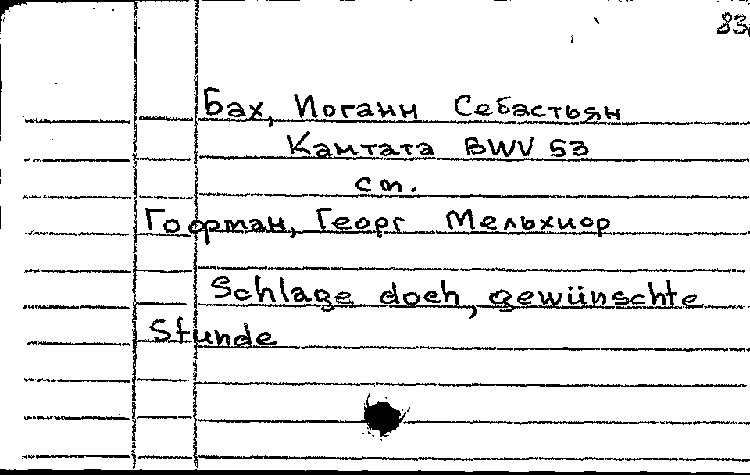 83
Бах, Иоганн Себастьян
Кантата BWV 53
см.
Гофман, Георг Мельхиор
Schlage doch, gewünschte
Stunde